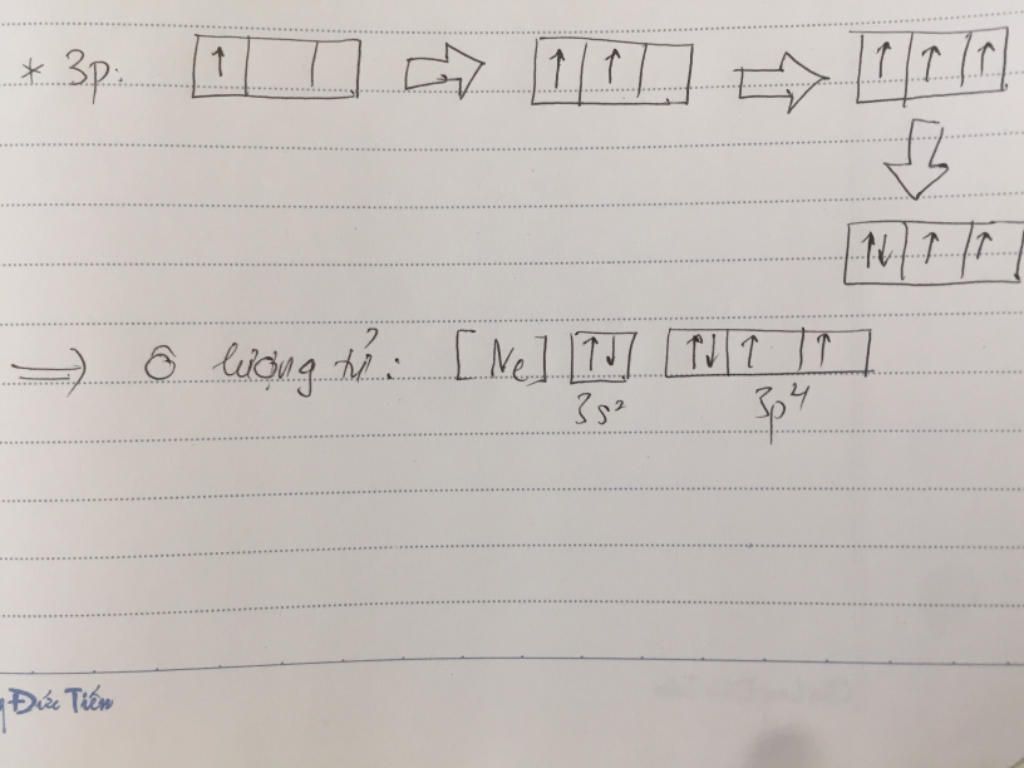 * 3p: ↑ ⇨ ↑ ↑ ⇨ ↑ ↑ ↑
⇩
↑↓ ↑ ↑
⟹ Ô lượng tử: [Ne] ↑↓ ↑↓ ↑ ↑
3s² 3p⁴
Đức Tiến